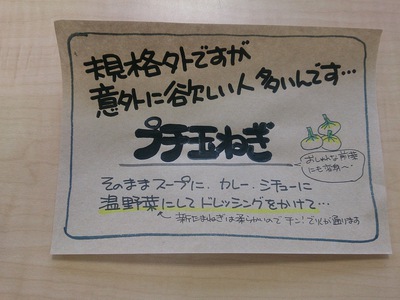 規格外ですが
意外に欲しい人 多いんです…
プチ玉ねぎ
おしゃれな前菜
にも最適〜
そのままスープに、カレー、シチューに
温野菜にして ドレッシングをかけて…
新たまねぎは柔らかいので チン！で火が通ります